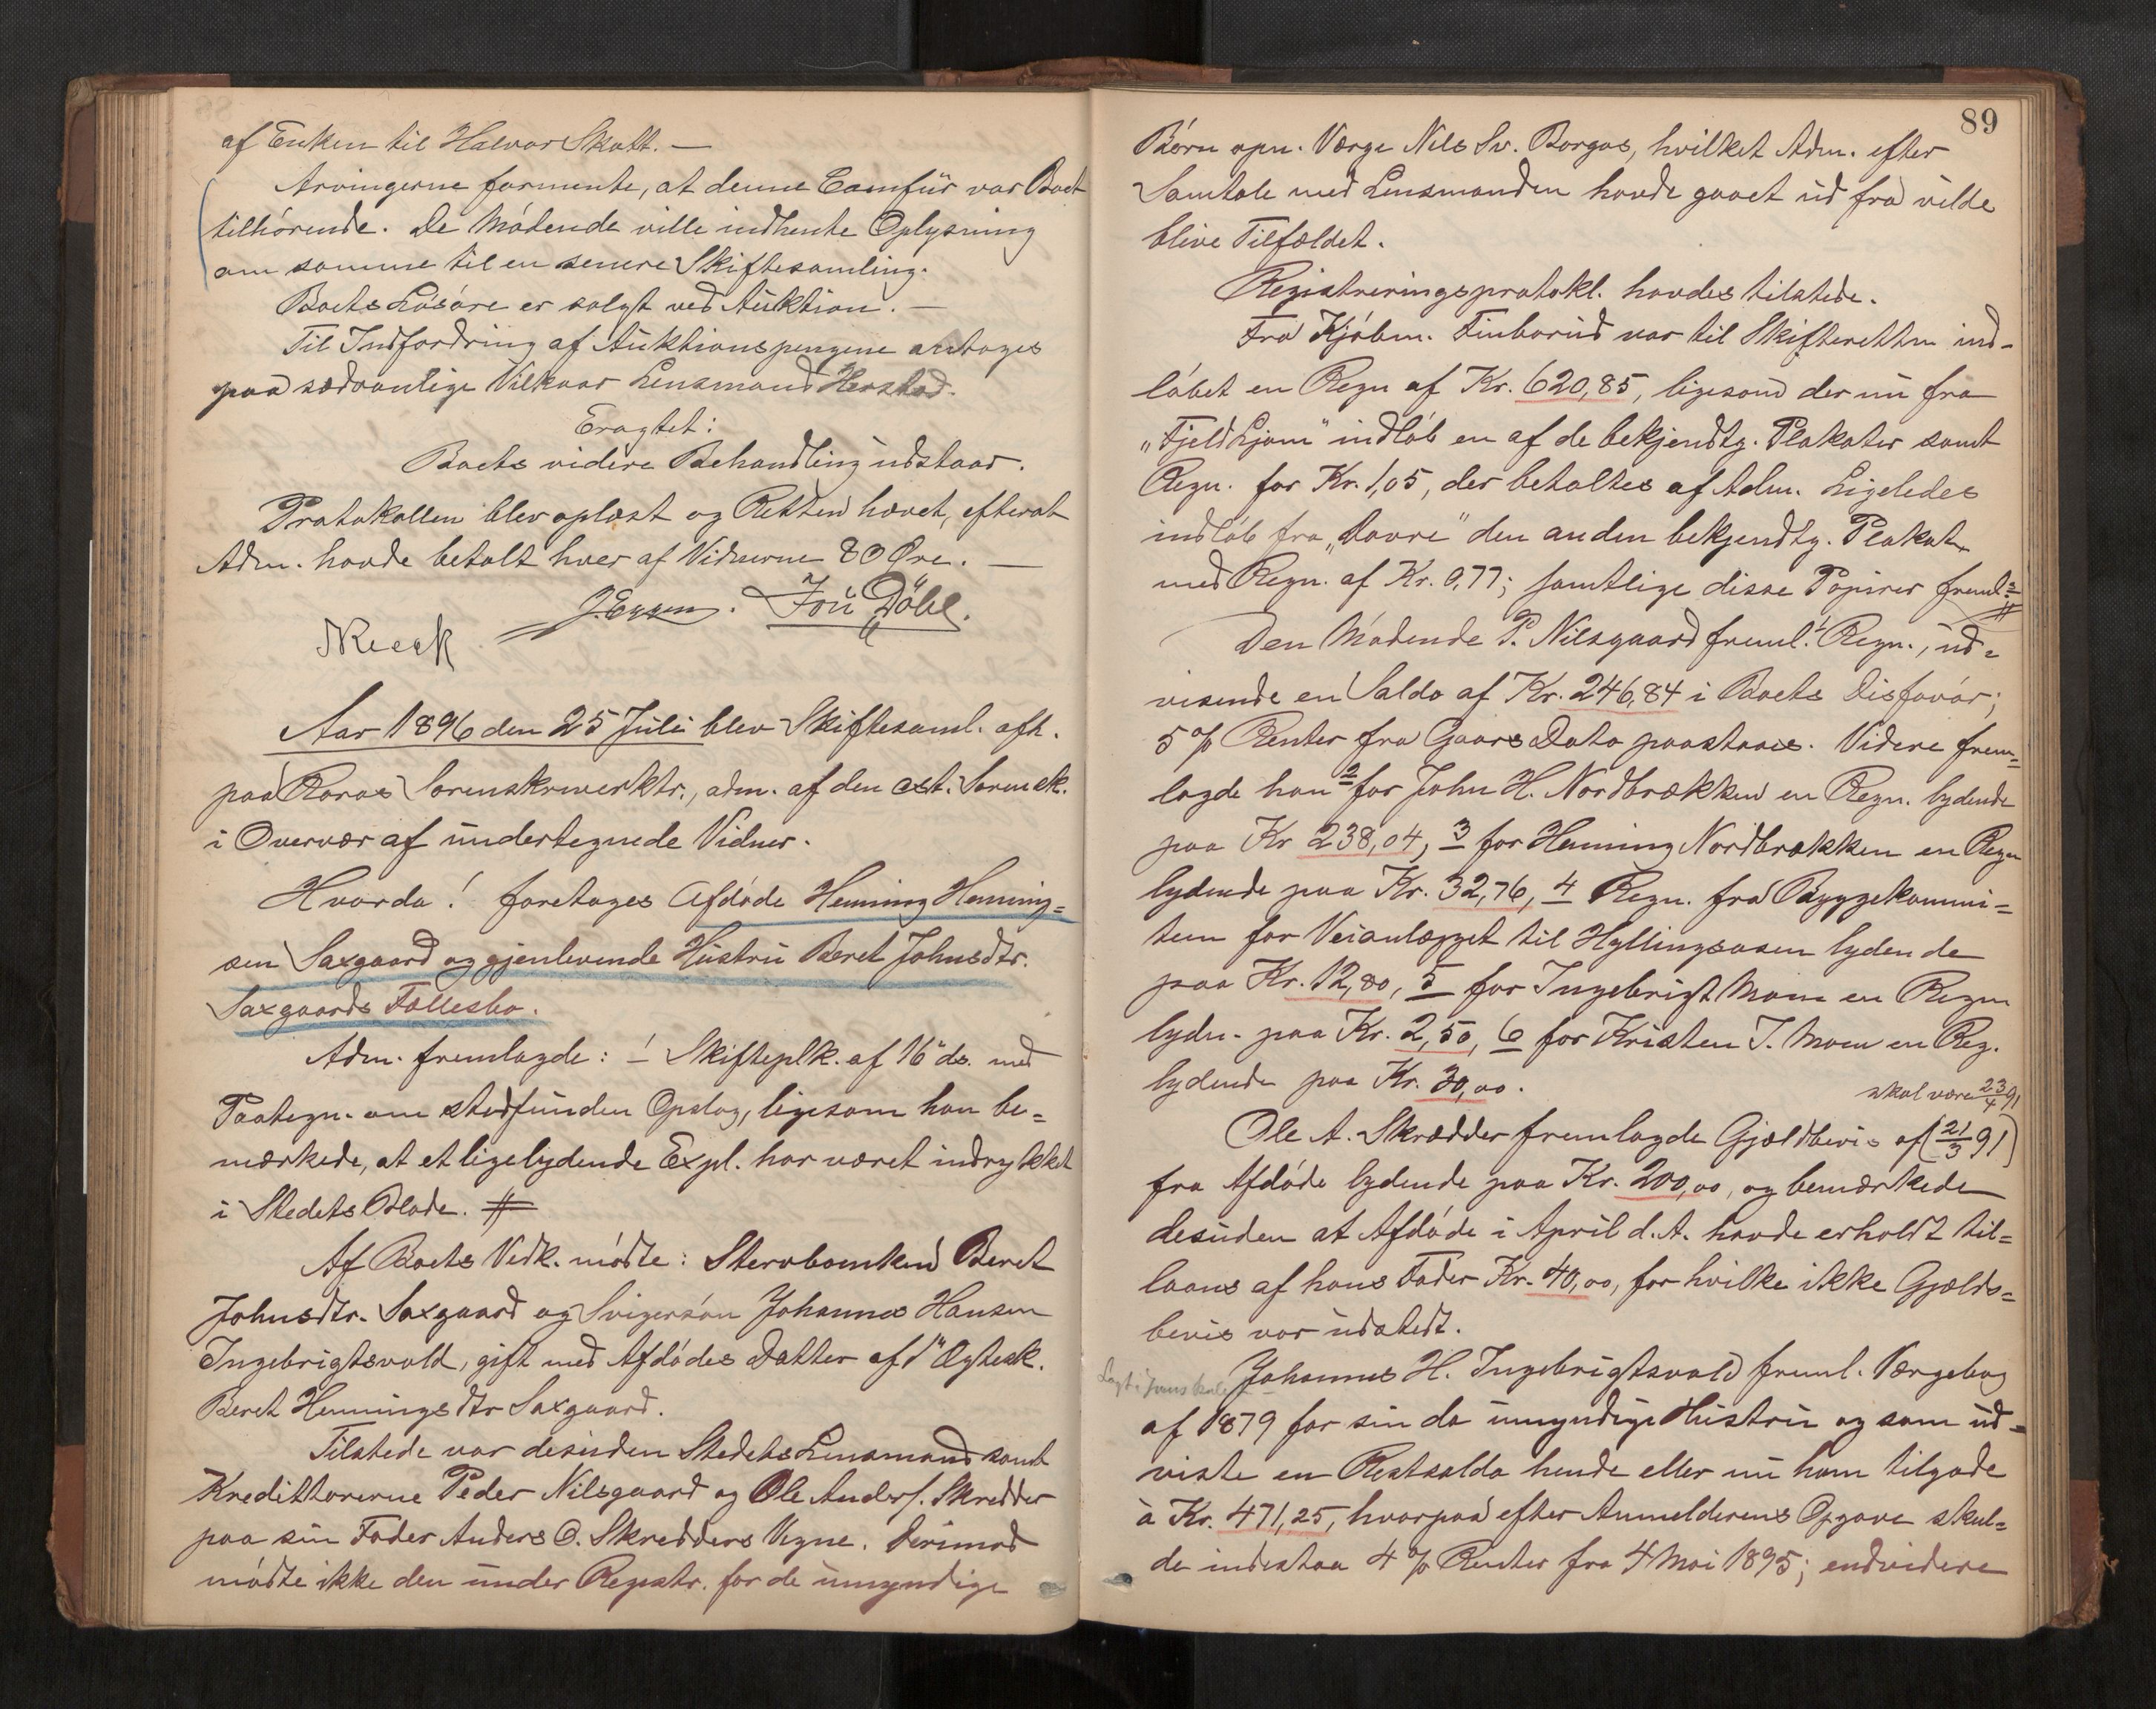 af Enken til Halvor Skott. —
Arvingerne formente, at denne Comfür var Boet
tilhörende. De Mödende ville indhente Oplysning
om samme til en senere Skiftesamling.
Boets Lösöre er solgt ved Auktion. —
Til Indfordring af Auktionspengene antoges
paa sædvanlige Vilkaar Lensmand Herstad.
Eragtet:
Boets videre Behandling udstaar.
Protokollen blev oplæst og Retten hævet, efterat
Adm. havde betalt hver af Vidnerne 80 Øre. —
J. Eggen. Jou Döhl.
Aar 1896 den 25 Juli blev Skiftesaml. afh.
paa Röros Sorenskriverktr., adm. af den cst. Sorensk.
i Overvær af undertegnede Vidner.
Hvorda! foretages Afdöde Henning Henning=
sen Saxgaard og gjenlevende Hustru Beret Johnsdtr.
Saxgaards Fællesbo.
Adm. fremlagde: 1 Skifteplk. af 16" ds. med
Paategn. om stedfunden Opslag, ligesom han be=
mærkede, at et ligelydende Expl. har været indrykket
i Stedets Blade. #
Af Boets Vedk. mödte: Stervboenken Beret
Johnsdtr. Saxgaard og Svigersön Johannes Hansen
Ingebrigtsvold, gift med Afdödes Datter af 1" Ægtesk.
Beret Henningsdtr Saxgaard.
Tilstede var desuden Stedets Lensmand samt
Kredittorerne Peder Nilsgaard og Ole Anders. Skredder
paa sin Fader Anders O. Skredders Vegne. Derimod
mödte ikke den under Registr. for de umyndige
89
Börn opn. Værge Nils Sv. Borgos, hvilket Adm. efter
Samtale med Lensmanden havde gaaet ud fra vilde
blive Tilfældet.
Registreringsprotokl. havdes tilstede.
Fra Kjöbm. Finborud var til Skifteretten ind-
löbet en Regn af Kr. 620,85, ligesom der nu fra
"Fjeldljom" indløb en af de bekjendtg. Plakater samt
Regn. for Kr. 1,05, der betaltes af Adm. Ligeledes
indlöb fra "Dovre" den anden bekjendtg. Plakat
med Regn. af Kr. 0,77; samtlige disse Papirer freml. #
Den Mödende P. Nilsgaard freml. 1 Regn., ud=
visende en Saldo af Kr. 246,84 i Boets Disfavör;
5 % Renter fra Gaars Dato paastaaes. Videre frem=
lagde han 2 for John H. Nordbrækken en Regn. lydende
paa Kr 238,04, 3 for Henning Nordbrækken en Regn
lydende paa Kr. 32,76, 4 Regn. fra Byggekommi=
teen for Veianlægget til Hyllingsaasen lydende
paa Kr. 12,80, 5 for Ingebrigt Moen en Regn
lydn. paa Kr. 2,50, 6 for Kristen J. Moen en Reg.
lydende paa Kr. 30,00.
skal være 23/4 91
Ole A. Skrædder fremlagde Gjældbevis af (21/3 91)
fra Afdöde lydende paa Kr. 200,00, og bemærkede
desuden at Afdöde i April d. A. havde erholdt til=
laans af hans Fader Kr. 40,00, for hvilke ikke Gjælds=
bevis var udstedt.
Johannes H. Ingebrigtsvold freml. Værgebog
af 1879 for sin da umyndige Hustru og som ud=
viste en Restsaldo hende eller nu ham tilgode
à Kr. 471,25, hvorpaa efter Anmelderens Opgave skul=
de indestaa 4 % Renter fra 4 Mai 1895; endvidere